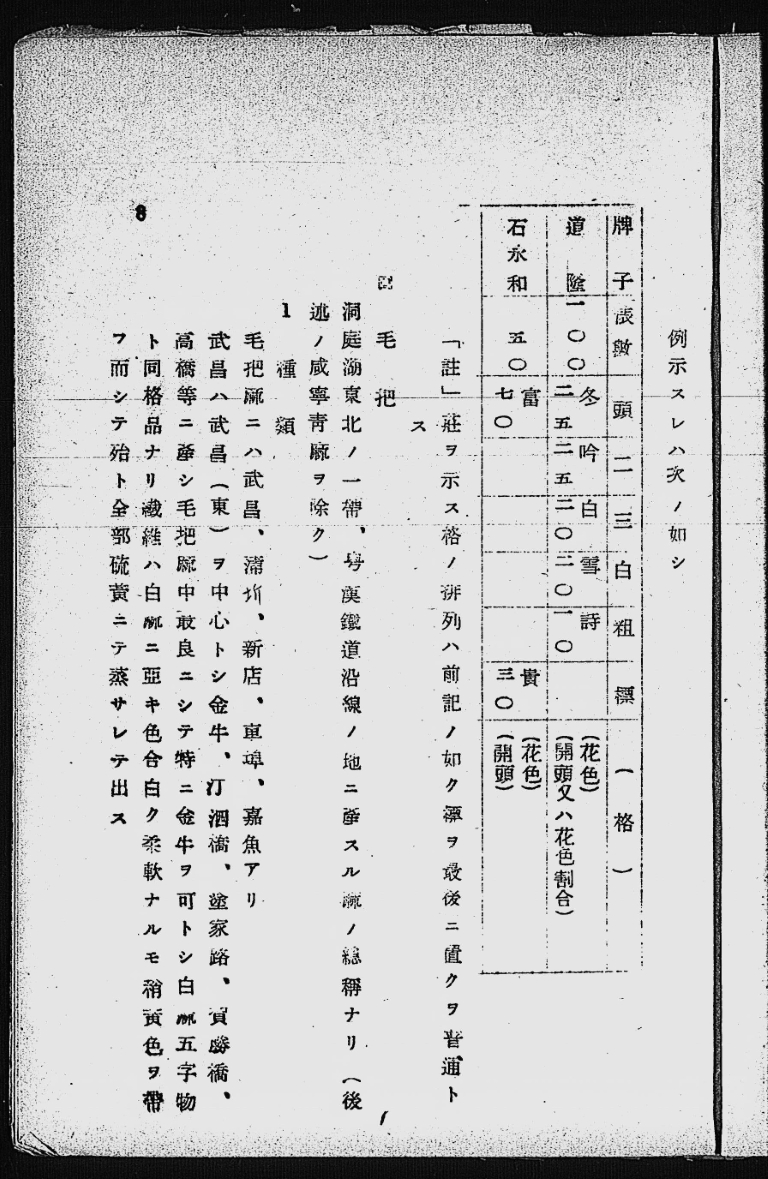 例示スレハ次ノ如シ
牌子 張數 頭 二 三 白 粗 漂 (格)
道陰 一〇〇 冬二五 吟二五 白二〇 雪二〇 詩一〇 (花色) (開頭又ハ花色割合)
石永和 五〇 富七〇 貴三〇 (花色) (開頭)
「註」莊ヲ示ス格ノ排列ハ前記ノ如ク漂ヲ最後ニ置クヲ普通ト
ス
毛把
洞庭湖東北ノ一帶、粤漢鐵道沿線ノ地ニ產スル麻ノ總稱ナリ(後
述ノ咸寧靑麻ヲ除ク)
1 種類
毛把麻ニハ武昌、蒲圻、新店、車埠、嘉魚アリ
武昌ハ武昌(東)ヲ中心トシ金牛、汀泗橋、塗家路、賀勝橋、
高橋等ニ產シ毛把麻中最良ニシテ特ニ金牛ヲ可トシ白麻五字物
ト同格品ナリ纖維ハ白麻ニ亞キ色合白ク柔軟ナルモ稍黃色ヲ帶
フ而シテ殆ト全部硫黃ニテ蒸サレテ出ス
8